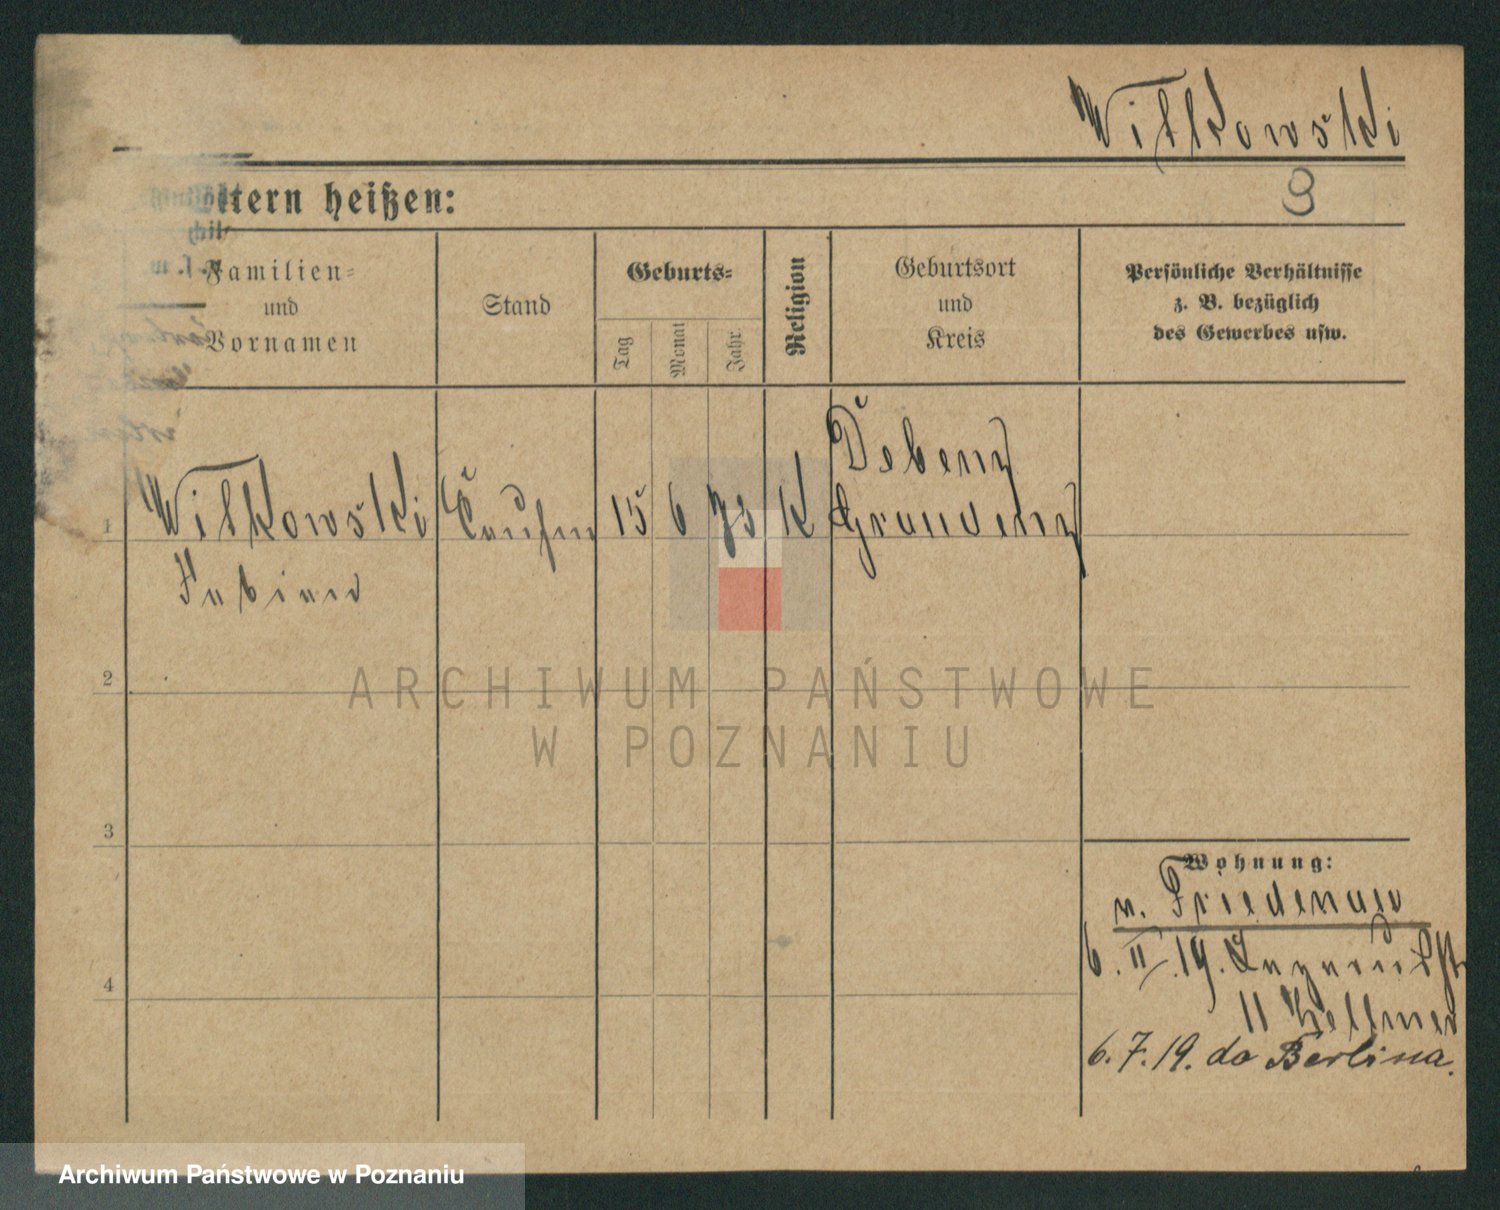 Wilkowski
ltern heißen:
3
Familien=
und
Vornamen
Stand
Geburts=
Tag
Monat
Jahr
Religion
Geburtsort
und
Kreis
Persönliche Verhältnisse
z. B. bezüglich
des Gewerbes usw.
1
Wilkowski
15 6 73 K
Graudenz
Fabian
2
3
4
Wohnung:
v. Friedenau
6. II. 19.
11
6. 7. 19. do Berlina.
ARCHIWUM PAŃSTWOWE
W POZNANIU
Archiwum Państwowe w Poznaniu